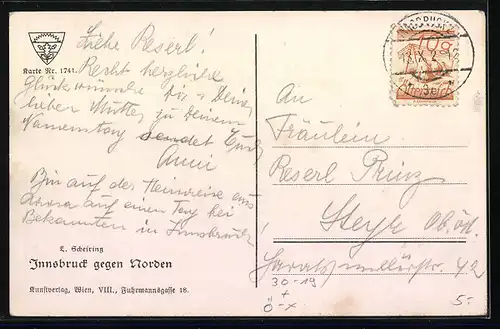 Karte Nr. 1741.
Liebe Reserl!
Recht herzliche
Glückwünsche Dir u. Deiner
lieben Mutter zu Deinem
Namenstag sendet Euch
Anni
Bin auf der Heimreise aus
auf einen Tag bei
Bekannten in Innsbruck
L. Scheiring
Innsbruck gegen Norden
Kunstverlag, Wien, VIII., Fuhrmannsgasse 18.
INNSBRUCK
10g
Österreich
An
Fräulein
Reserl Prinz
Steyr Ob. öst.
42
30-19
+
Ö-x
5-